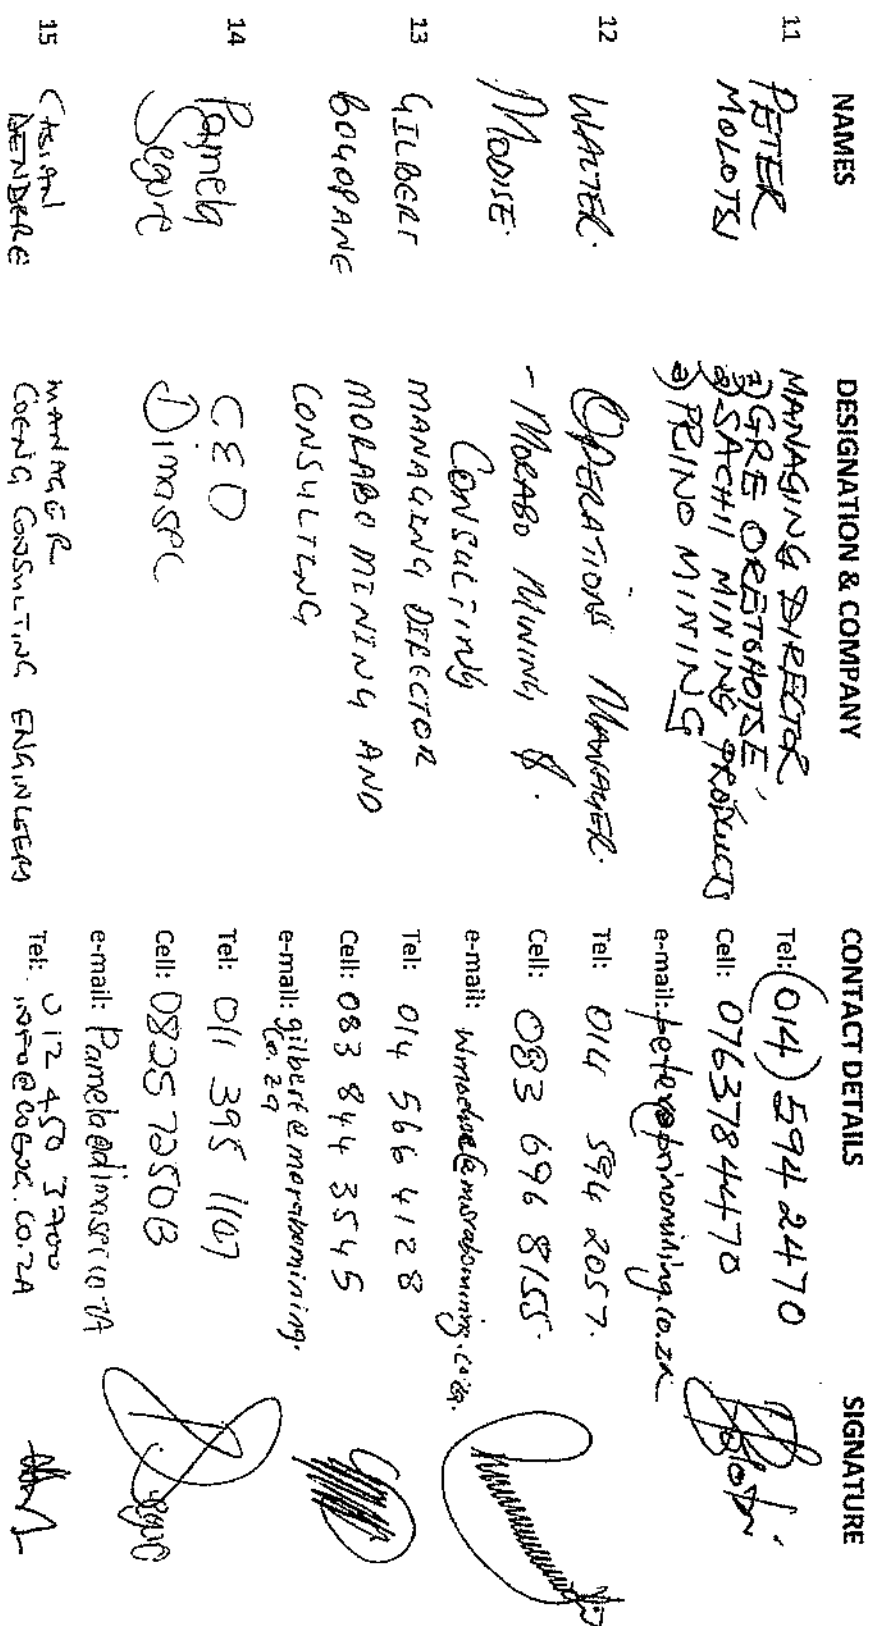 NAMES DESIGNATION & COMPANY CONTACT DETAILS SIGNATURE
11 PETER MOLOTSI
MANAGING DIRECTOR
1) GRE ORETSHOTSE
2) SACHII MINING PRODUCTS
3) PRINO MINING
Tel: (014) 594 2470
Cell: 0763784470
e-mail: peter@prinomining.co.za
12 WALTER.
MODISE.
OPERATIONS MANAGER.
- MORABO MINING &.
CONSULTING
Tel: 014 594 2057.
Cell: 083 696 8155.
e-mail:
13 GILBERT
BOGOPANE
MANAGING DIRECTOR
MORABO MINING AND
CONSULTING
Tel: 014 566 4128
Cell: 083 844 3545
e-mail: gilbert@morabomining.
co.za
14 Pamela
Segure
CEO
DimasPC
Tel: 011 395 1167
Cell:
e-mail:
15
DENDERE
MANAGER
COENG CONSULTING ENGINEERS
Tel: 012 450 3700